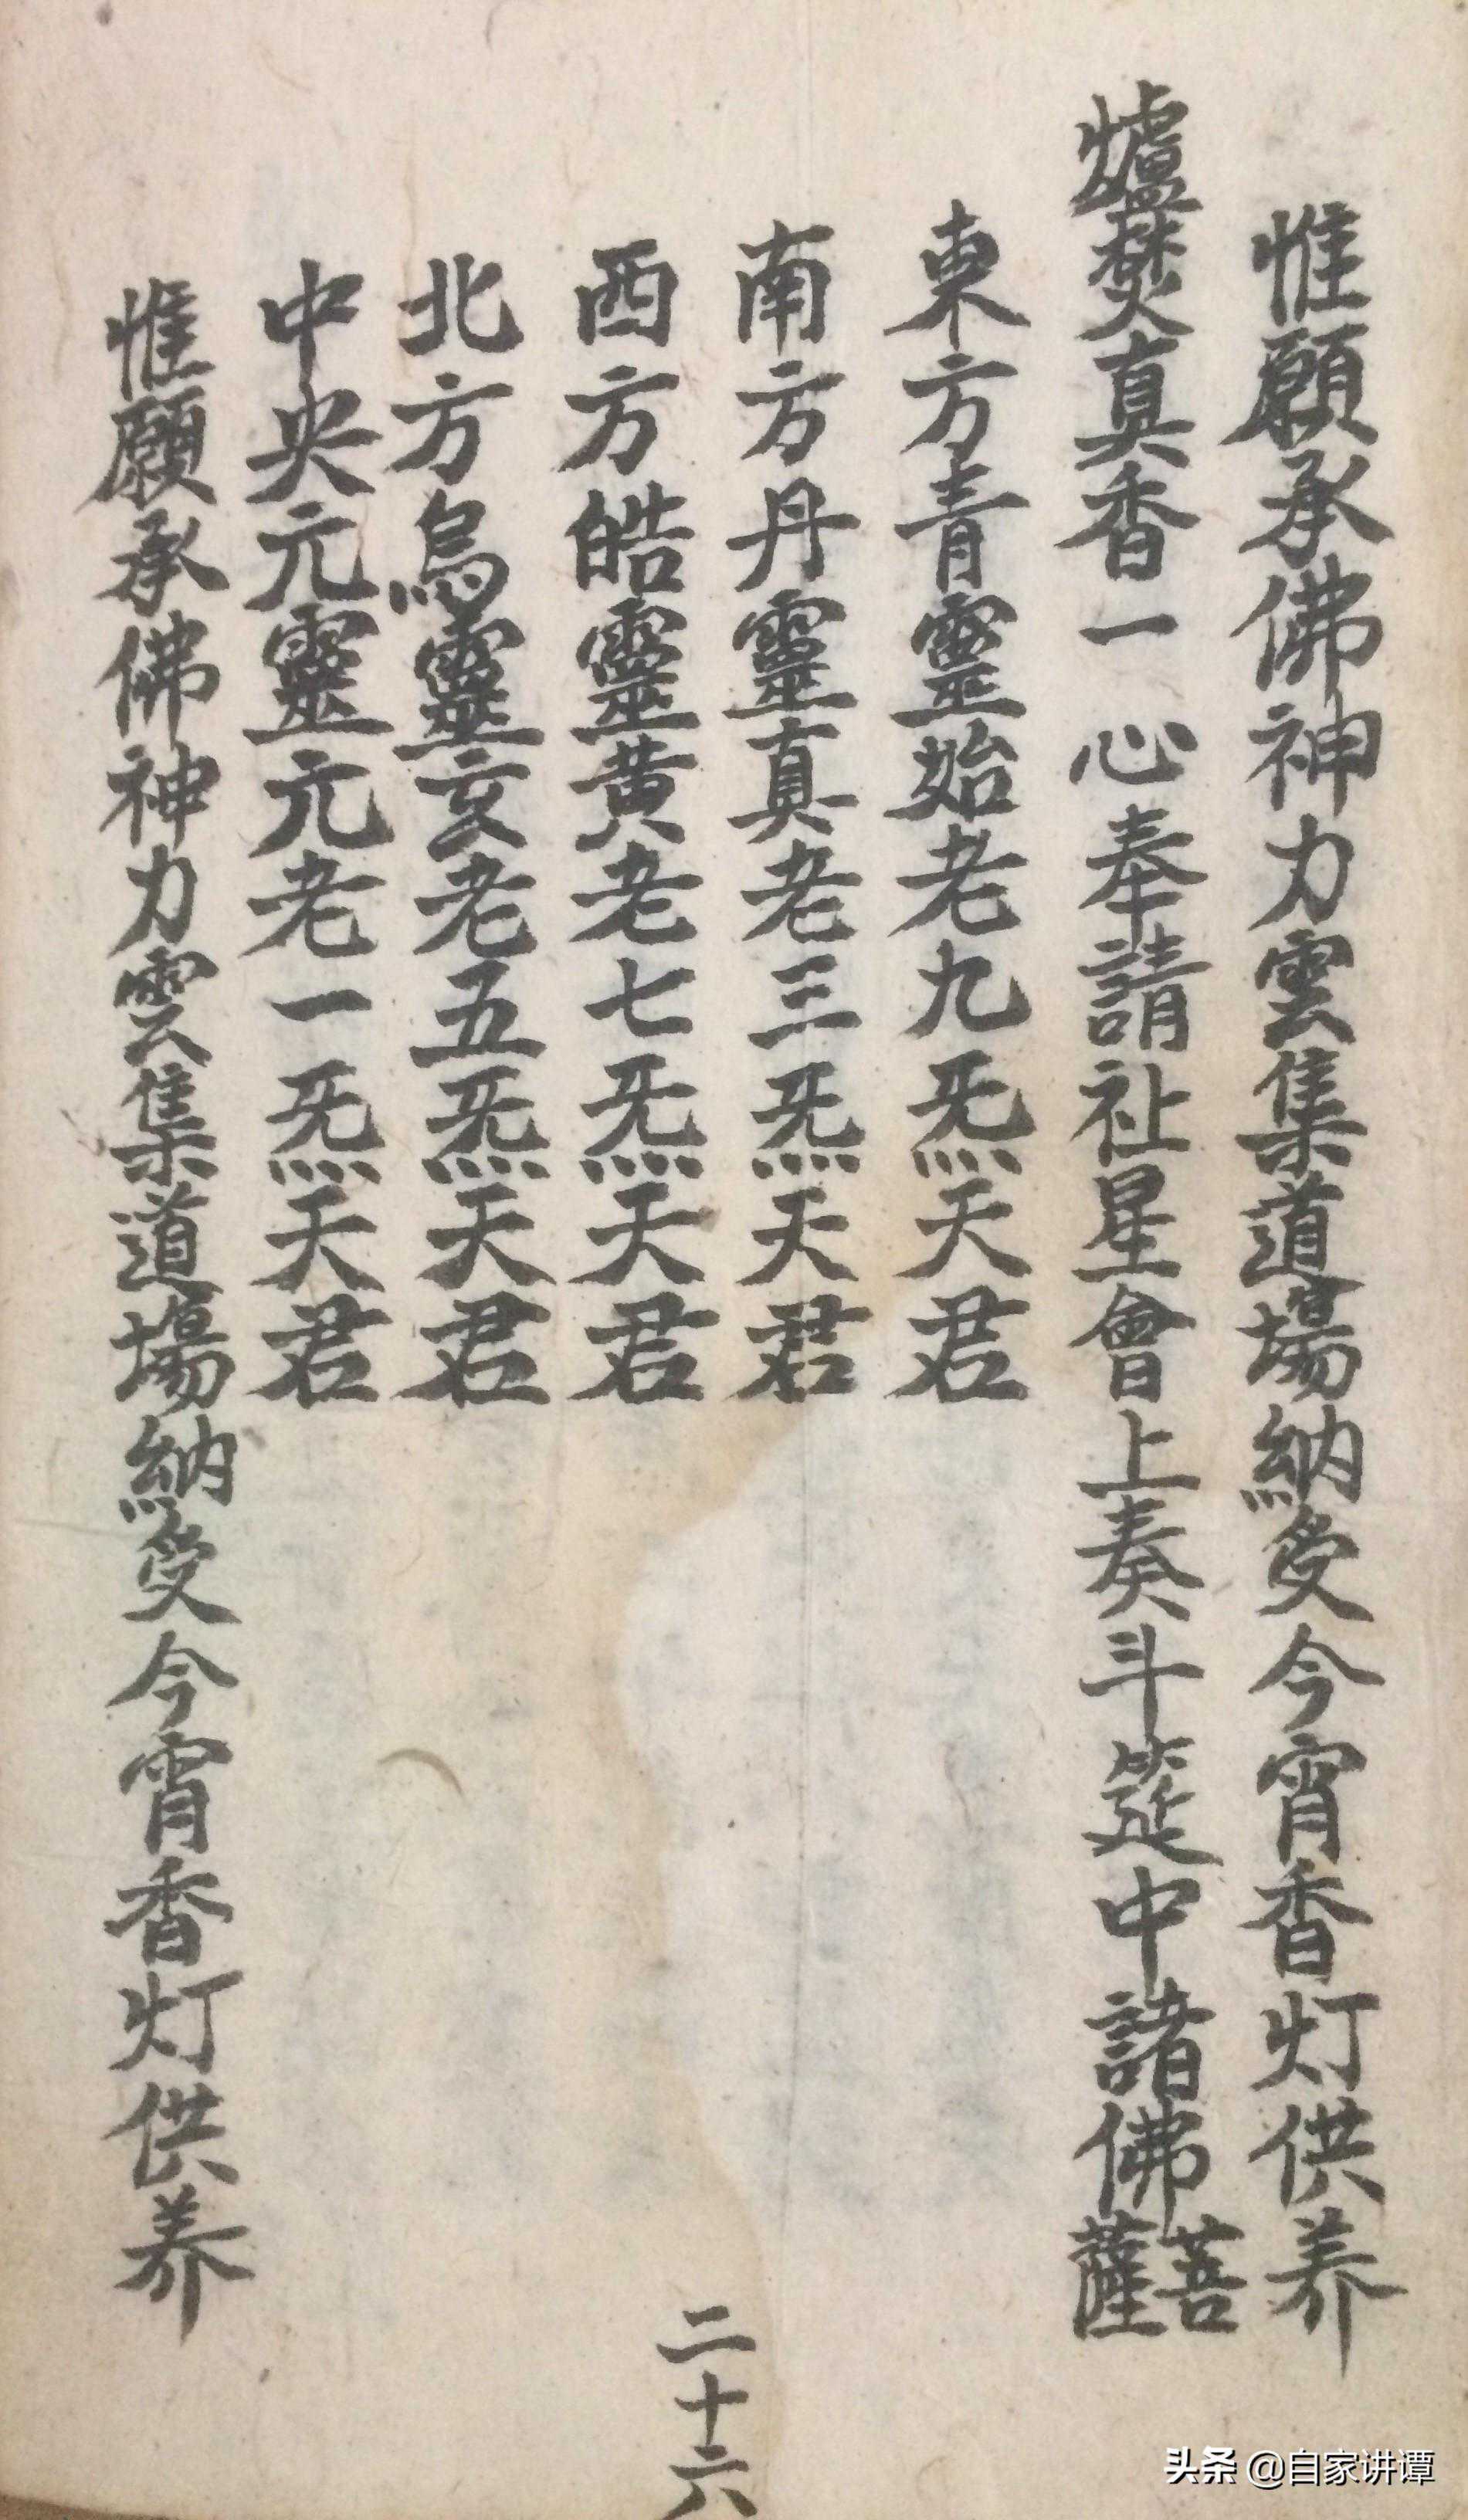 惟願承佛神力雲集道場納受今宵香灯供养
爐焚真香一心奉請祉星會上奏斗筵中諸佛菩薩
東方青靈始老九炁天君
南方丹靈真老三炁天君
西方皓靈黄老七炁天君
北方烏靈玄老五炁天君
中央元靈元老一炁天君
惟願承佛神力雲集道場納受今宵香灯供养
二十六
头条 @自家讲谭